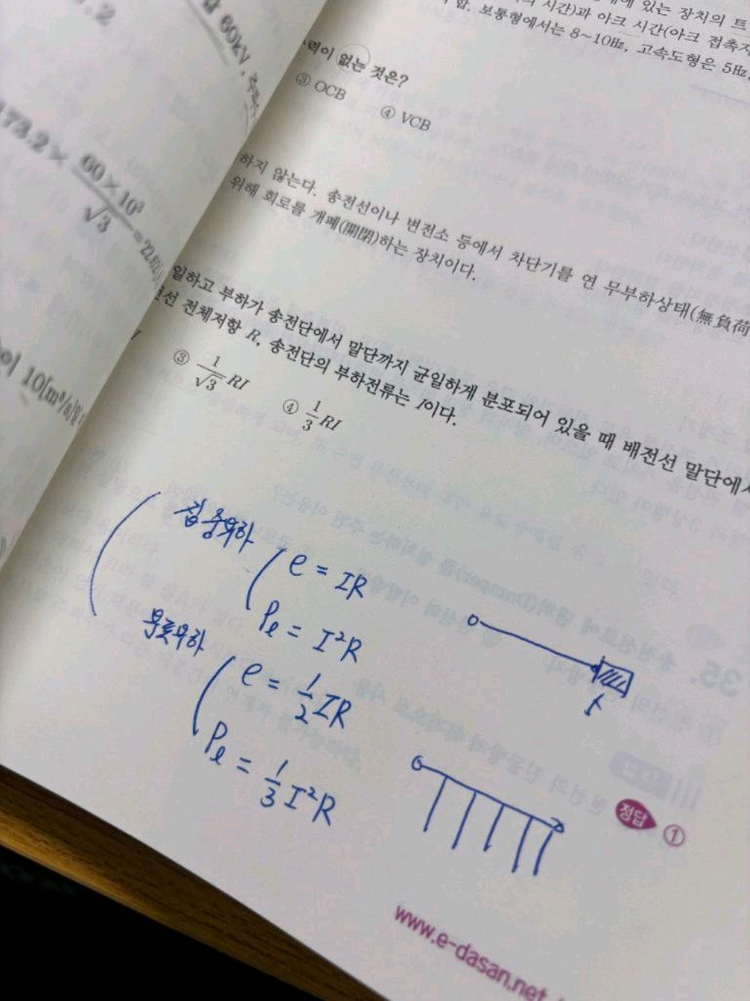 60kV,
173.2 × 60×10³/√3 =
10[m³/s]
에 있는 장치의 트
시간)과 아크 시간(아크 접촉자
보통형에서는 8~10Hz, 고속도형은 5Hz,
력이 없는 것은?
③ OCB ④ VCB
하지 않는다. 송전선이나 변전소 등에서 차단기를 연 무부하상태(無負荷
위해 회로를 개폐(開閉)하는 장치이다.
일하고 부하가 송전단에서 말단까지 균일하게 분포되어 있을 때 배전선 말단에서
전체저항 R, 송전단의 부하전류는 I이다.
③ 1/√3 RI ④ 1/3 RI
집중부하
e = IR
Pℓ = I²R
e = 1/2 IR
Pℓ = 1/3 I²R
정답 ①
www.e-dasan.net